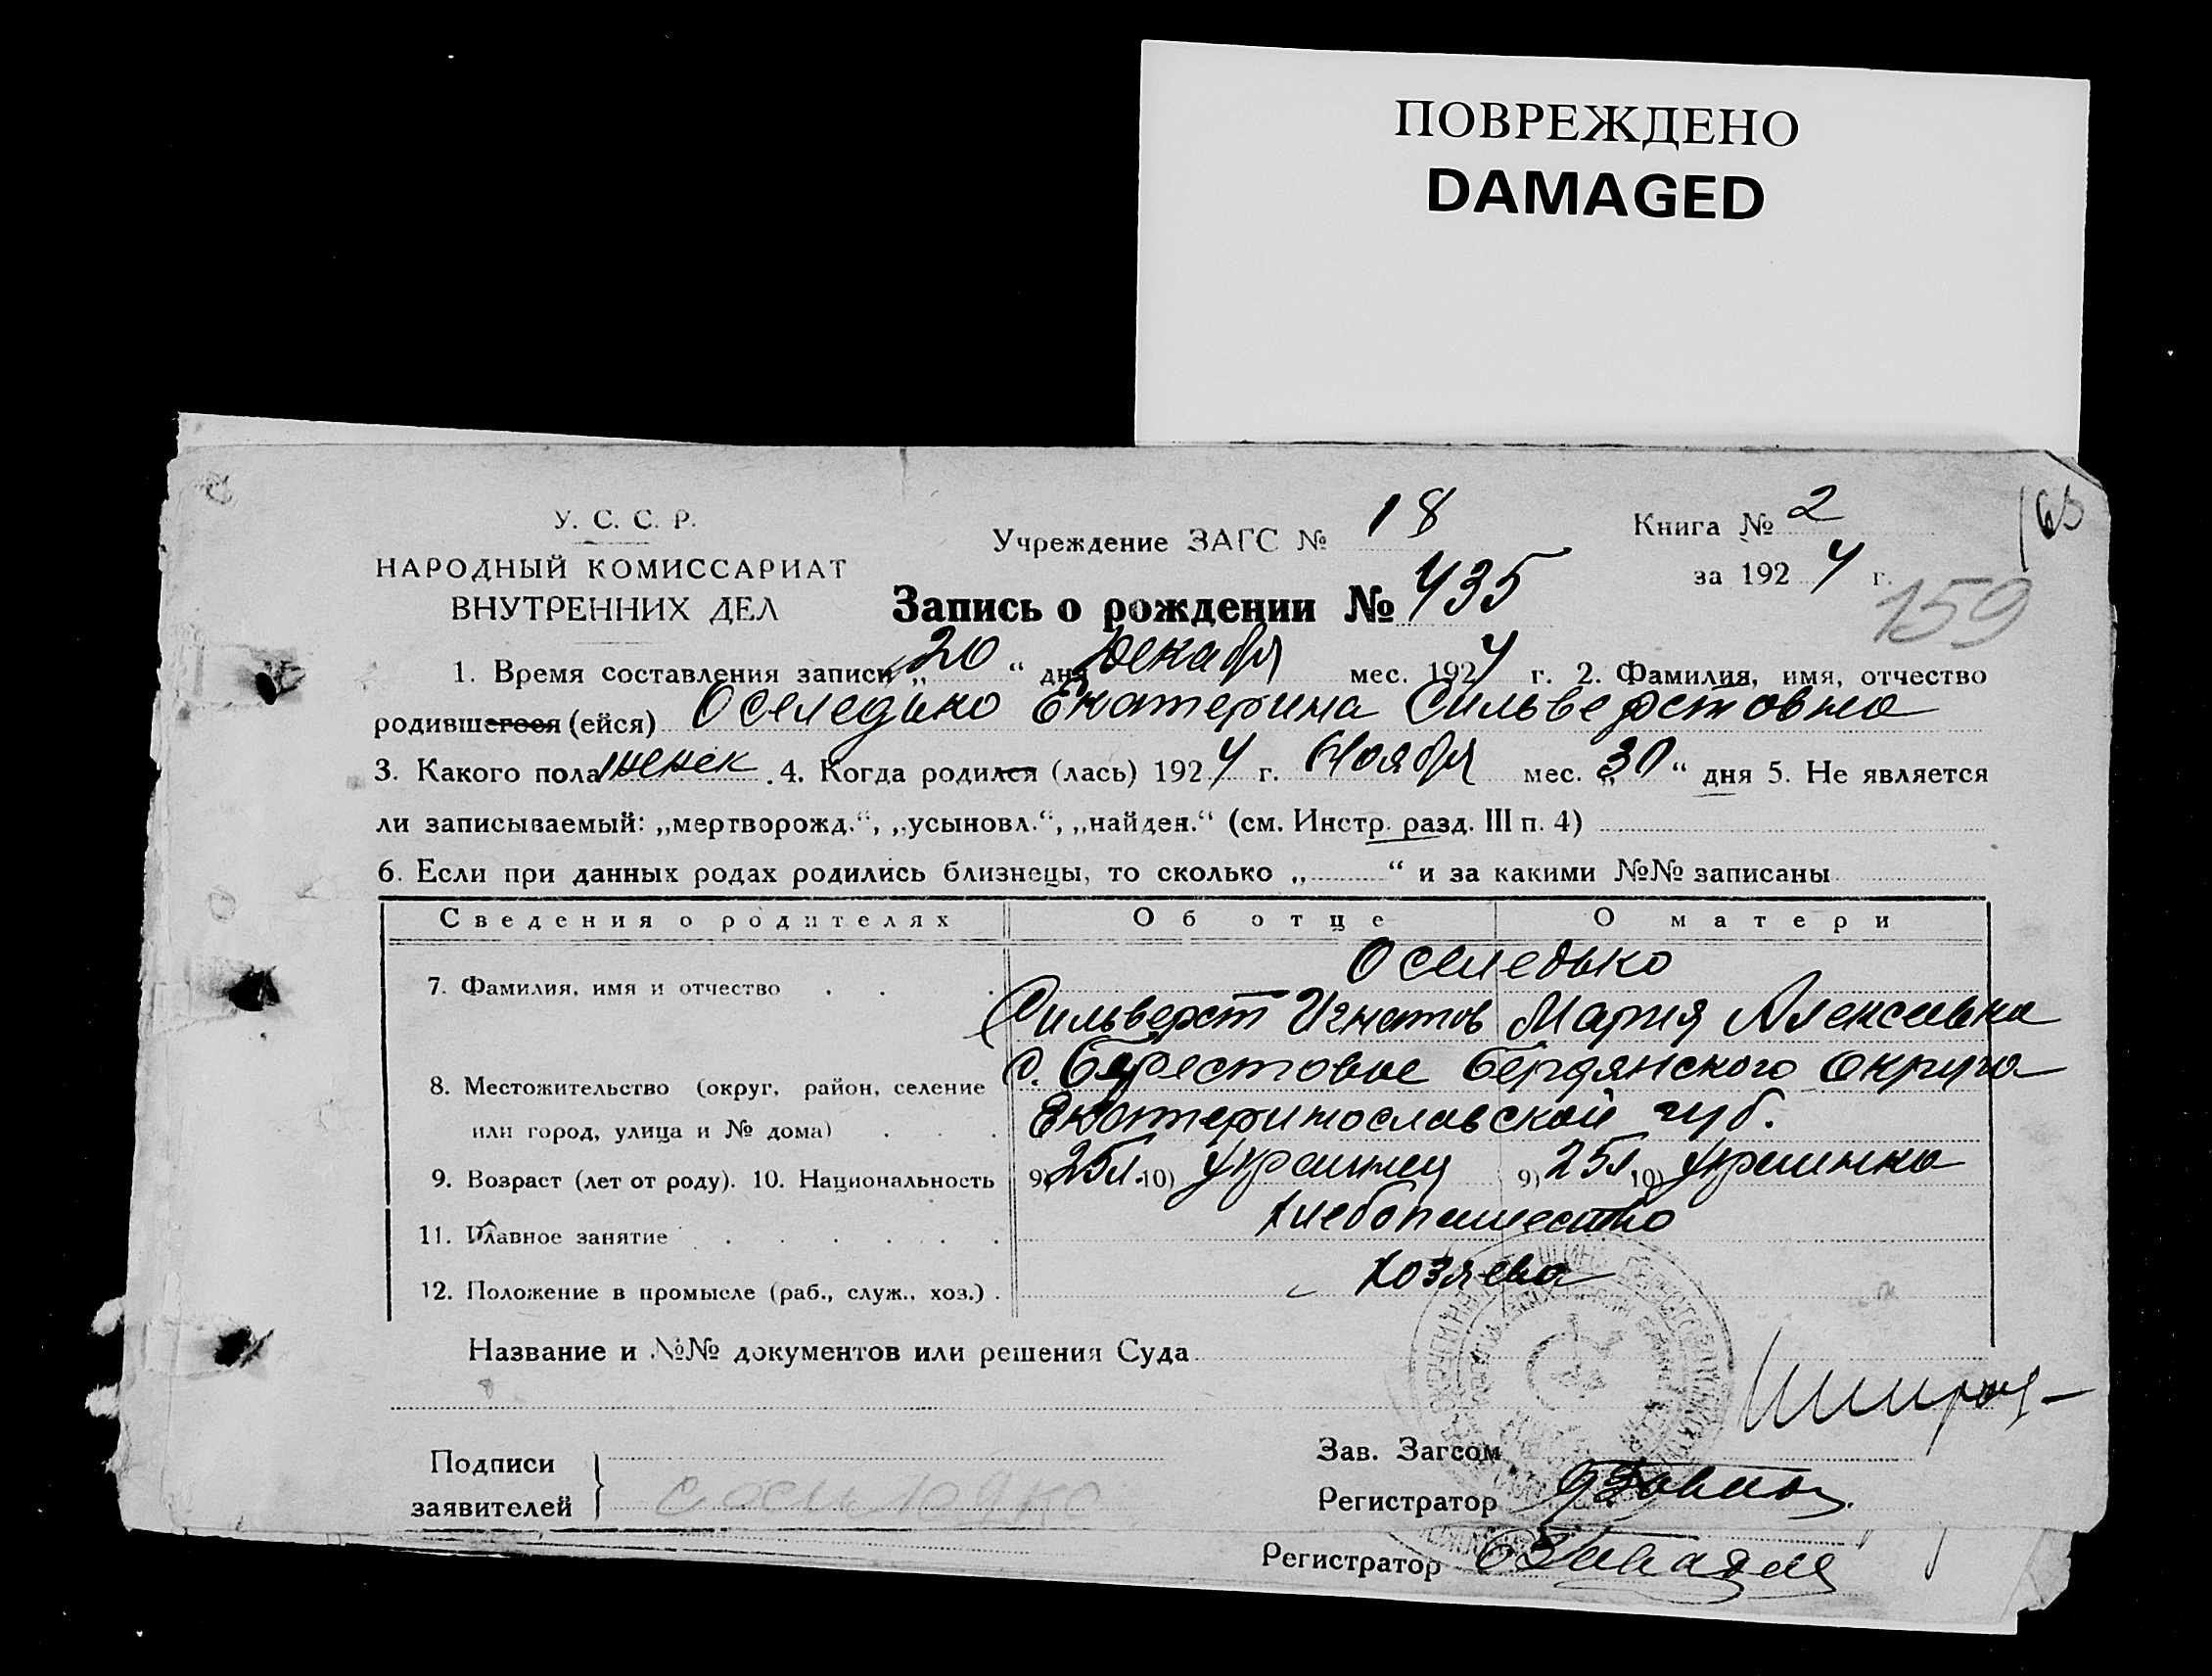 ПОВРЕЖДЕНО
DAMAGED
У. С. С. Р.
НАРОДНЫЙ КОМИССАРИАТ
ВНУТРЕННИХ ДЕЛ
Учреждение ЗАГС № 18
Книга № 2
за 1924 г.
159
Запись о рождении № 435
1. Время составления записи „20“ дня Декабря мес. 1924 г. 2. Фамилия, имя, отчество
родившегося (ейся) Оселедько Екатерина Сильверстовна
3. Какого пола женск. 4. Когда родился (лась) 1924 г. Ноября мес. „30“ дня 5. Не является
ли записываемый: „мертворожд.“, „усыновл.“, „найден.“ (см. Инстр. разд. III п. 4)
6. Если при данных родах родились близнецы, то сколько „ “ и за какими №№ записаны
Сведения о родителях Об отце О матери
Оселедько
7. Фамилия, имя и отчество
Сильверст Игнатов Мария Алексевна
8. Местожительство (округ, район, селение
или город, улица и № дома)
с. Берестовое Бердянского округа
Екатеринославской губ.
9. Возраст (лет от роду). 10. Национальность 9) 25 л. 10) Украинец 9) 25 л 10) Украинка
11. Главное занятие Хлебопашество
12. Положение в промысле (раб., служ., хоз.) Хозяева
Название и №№ документов или решения Суда
Подписи
заявителей
Зав. Загсом
Регистратор
Регистратор